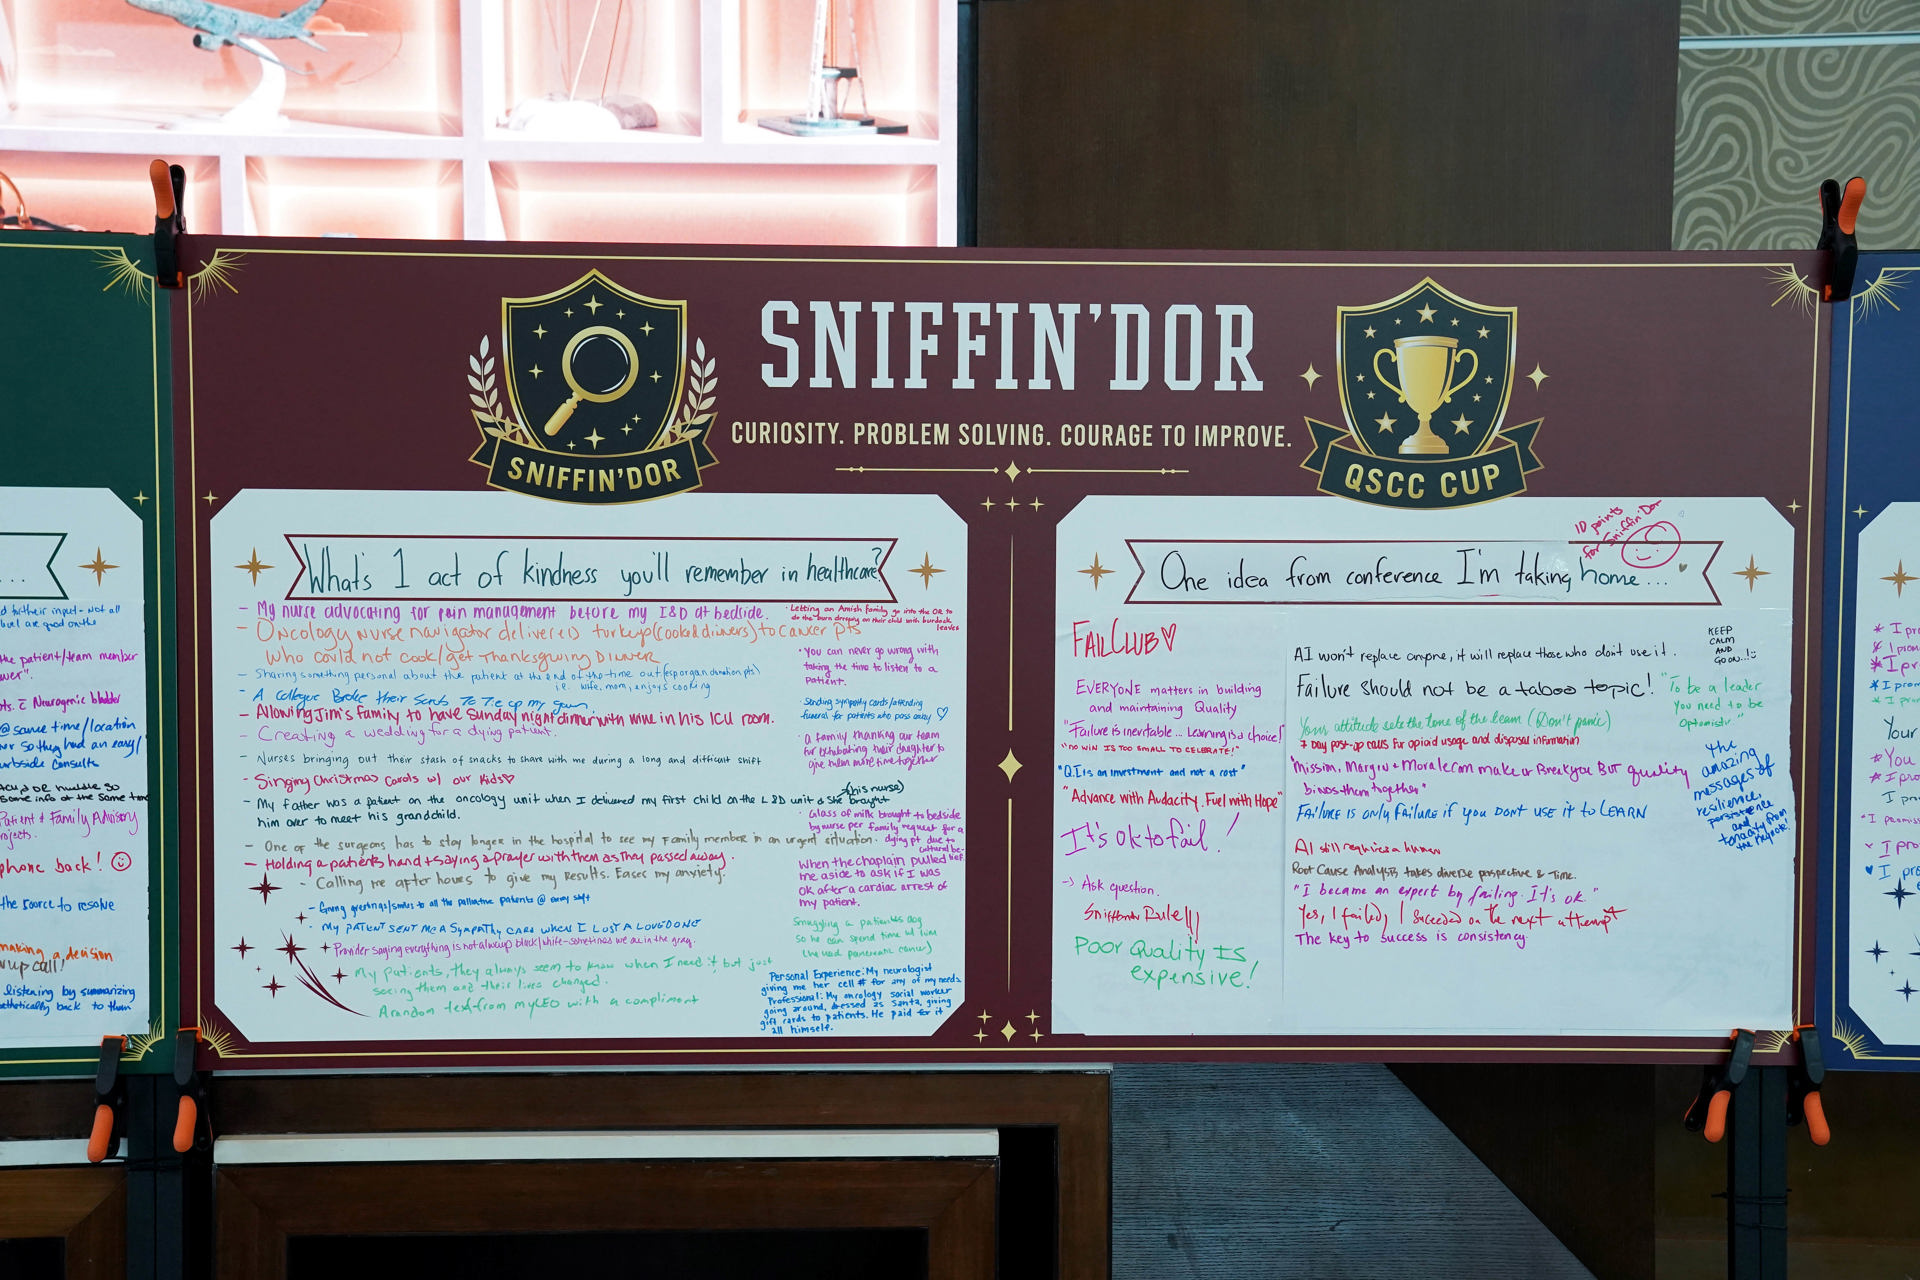 SNIFFIN'DOR
CURIOSITY. PROBLEM SOLVING. COURAGE TO IMPROVE.
SNIFFIN'DOR
QSCC CUP
What's 1 act of kindness you'll remember in healthcare?
- My nurse advocating for pain management before my I&D at bedside.
- Oncology Nurse navigator delivered turkey (cooked dinners) to cancer pts
who could not cook/get Thanksgiving Dinner
- Sharing something personal about the patient at the end of the time out (esp organ donation pts)
i.e. wife, mom, enjoys cooking
- A collegue Broke their Scrub To Tie up my gown.
- Allowing Jim's family to have Sunday night dinner with wine in his ICU room.
- Creating a wedding for a dying patient.
- Nurses bringing out their stash of snacks to share with me during a long and difficult shift
- Singing Christmas Carols w/ our kids♡
- My father was a patient on the oncology unit when I delivered my first child on the L&D unit & she brought
(his nurse)
him over to meet his grandchild.
- One of the surgeons has to stay longer in the hospital to see my family member in an urgent situation.
- Holding a patient's hand + saying a prayer with them as they passed away.
- Calling me after hours to give my results. Eases my anxiety.
- Giving greetings/smiles to all the palliative patients @ every shift
- My patient sent me a sympathy card when I lost a loved one
+ Provider saying everything is not always black/white - sometimes we are in the gray.
My patients, they always seem to know when I need it, but just
seeing them and their lives changed.
A random text from my CEO with a compliment
· Letting an Amish family go into the OR to
do the burn dressing on their child with burdock
leaves
· You can never go wrong with
taking the time to listen to a
patient.
· Sending sympathy cards/attending
funeral for patients who pass away ♡
· a family thanking our team
for extubating their daughter to
give them more time together
· Glass of milk brought to bedside
by nurse per family request for a
dying pt due to
cultural belief.
When the chaplain pulled
me aside to ask if I was
ok after a cardiac arrest of
my patient.
Smuggling a patient's dog
so he can spend time w/ him
(he had pancreatic cancer)
Personal Experience: My neurologist
giving me her cell # for any of my needs
Professional: My oncology social worker
going around, dressed as Santa, giving
gift cards to patients. He paid for it
all himself.
One idea from conference I'm taking home...
10 points
for Sniffin'Dor
FAIL CLUB ♡
EVERYONE matters in building
and maintaining Quality
"Failure is inevitable... Learning is a choice!
"No win is too small to celebrate!"
"Q.I is an investment and not a cost"
"Advance with Audacity, Fuel with Hope"
It's ok to fail!
-> Ask question.
Sniffindor Rule!!
Poor Quality is
expensive!
KEEP
CALM
AND
GO ON...!
AI won't replace anyone, it will replace those who don't use it.
Failure should not be a taboo topic!
"To be a leader
You need to be
Optimistic."
Your attitude sets the tone of the team (Don't panic)
7 day post-op calls for opioid usage and disposal information
"Mission, Margin + Morale can make or Break you BUT quality
binds them together"
Failure is only failure if you don't use it to LEARN
the
amazing
messages of
resilience,
persistence
and
tenacity from
the keynote!
AI still requires a human
Root Cause Analysis takes diverse perspective & Time.
"I became an expert by failing. It's ok."
Yes, I failed, I succeeded on the next attempt
The key to success is consistency.
...
the patient/team member
Neurogenic bladder
@ same time/location
or so they had an easy/
curbside consults
same info at the same time
Patient & Family Advisory
phone back! ☺
the source to resolve
making a decision
up call!
listening by summarizing
back to them
* I
* I
* I
Your
* You